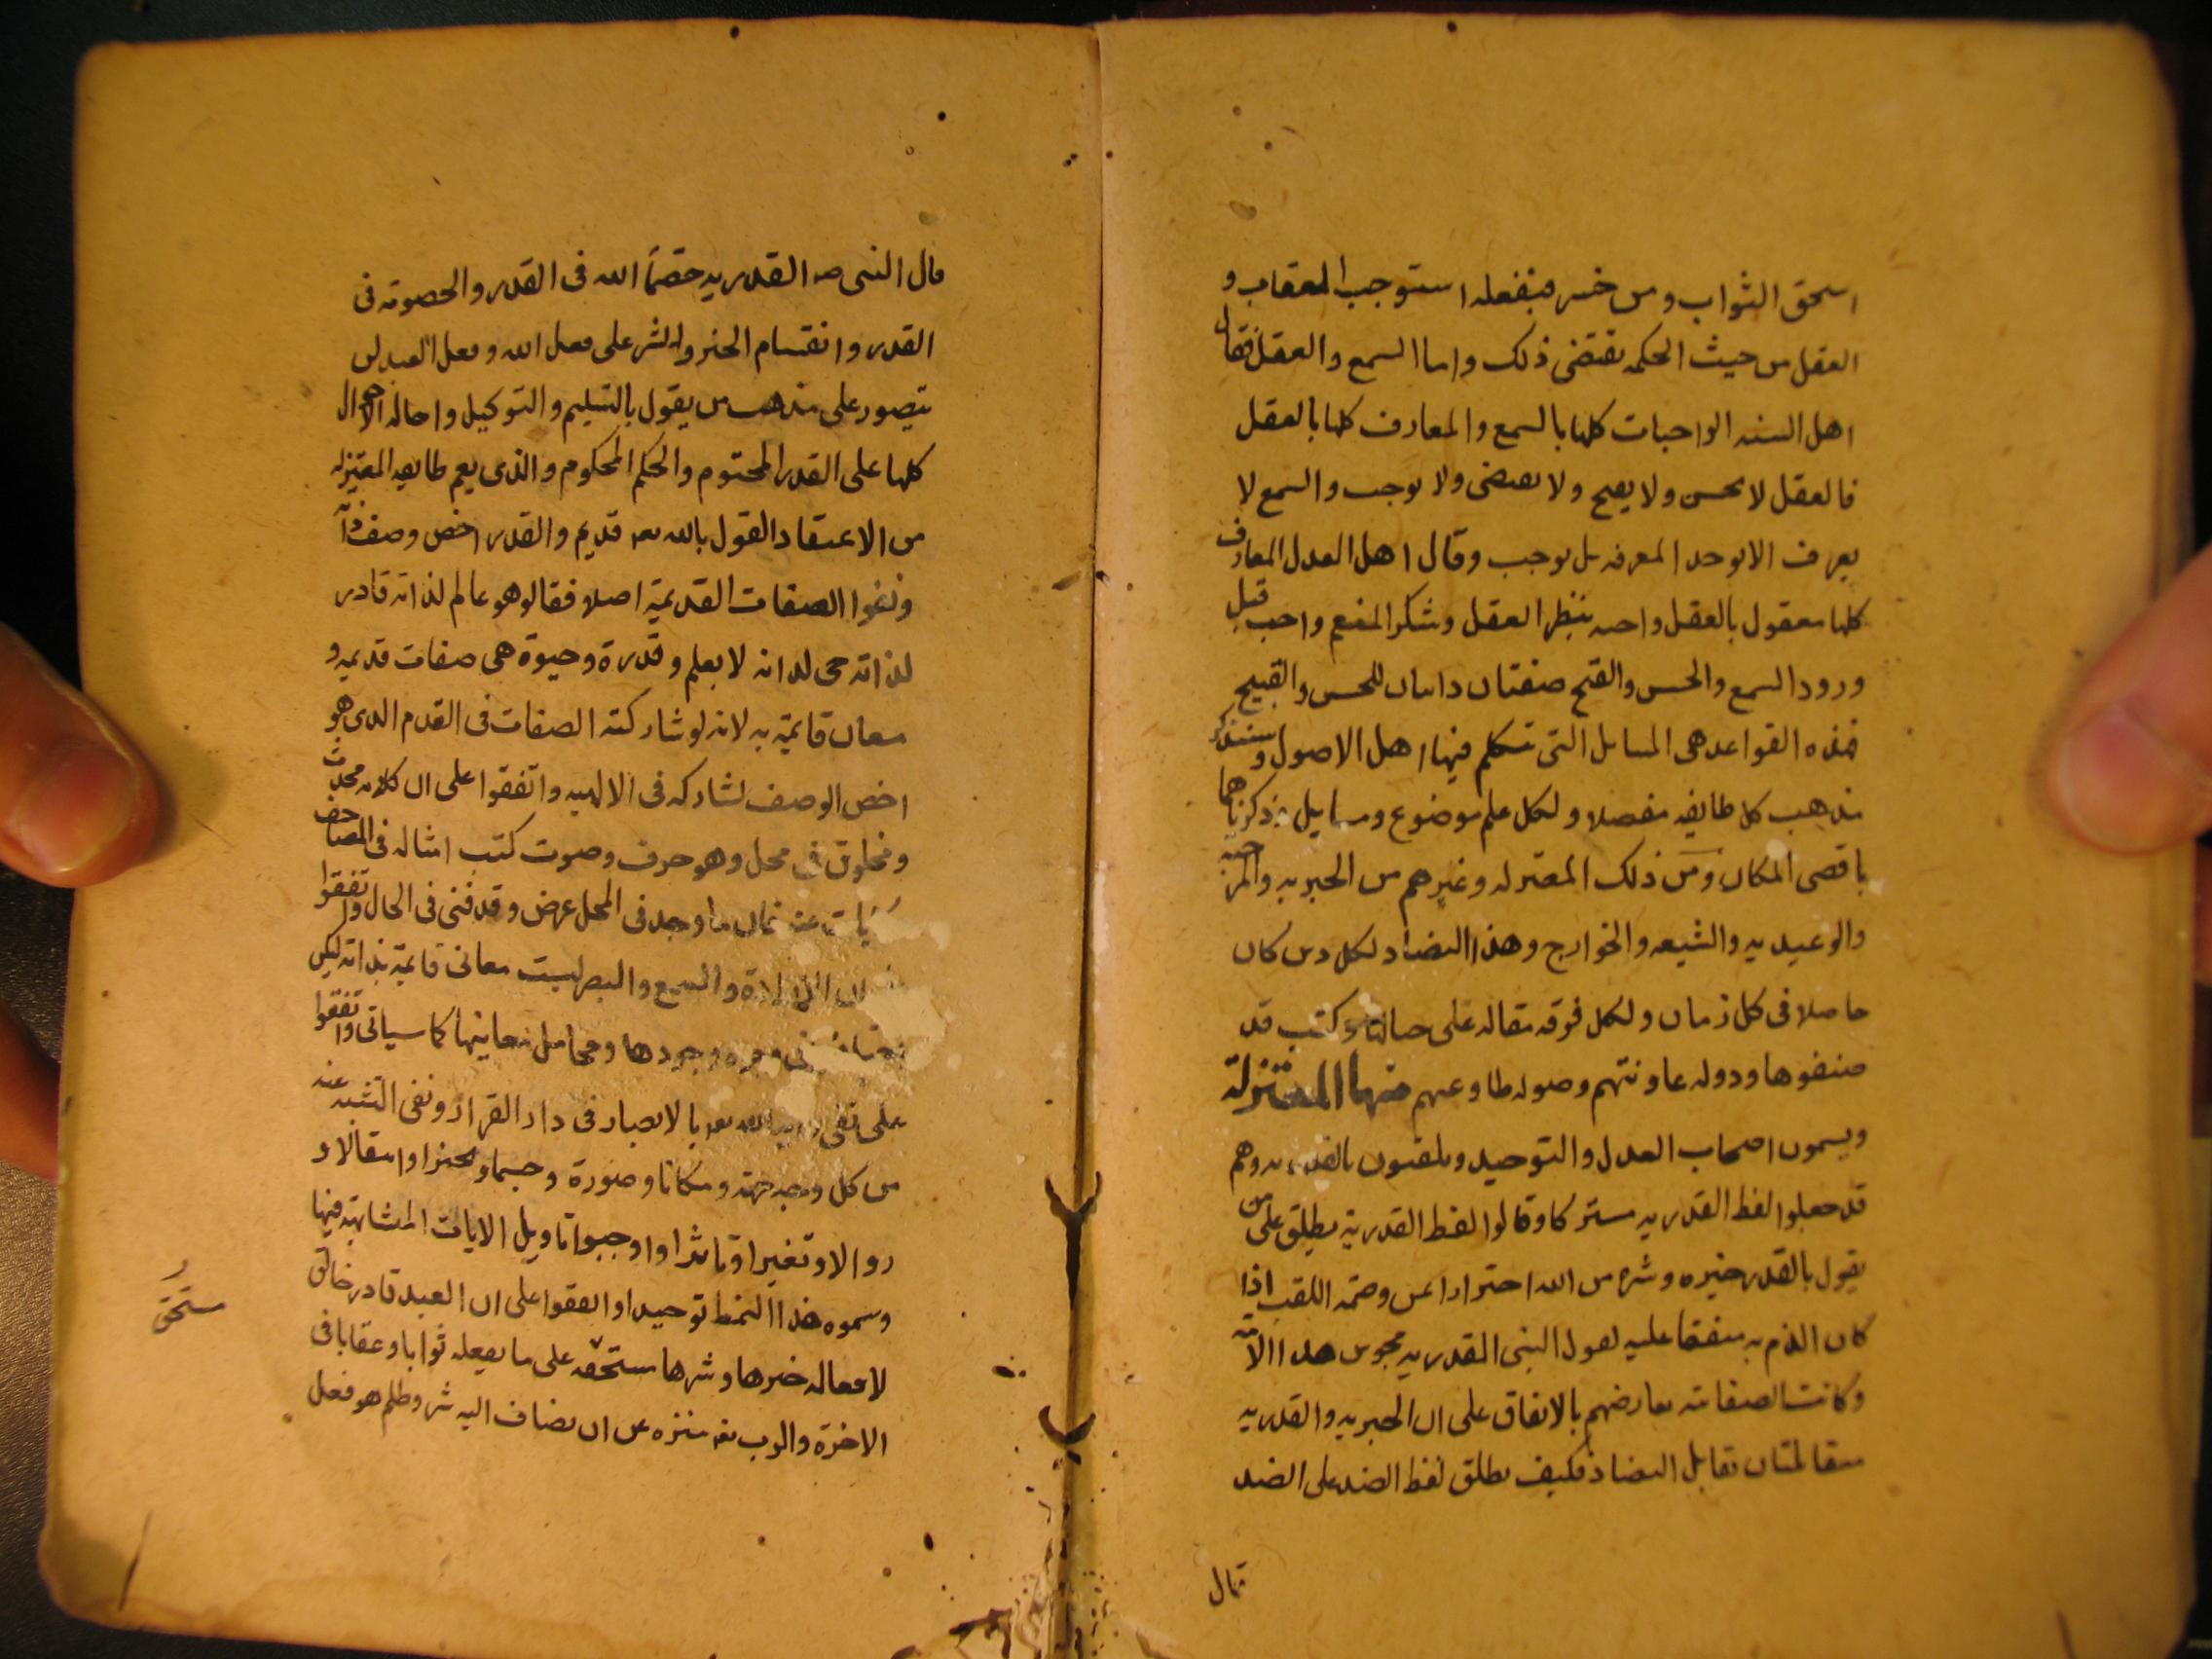 اسحق الثواب ومن خسر فبفعله استوجب العقاب و
العقل من حيث الحكمه يقتضى ذلك واما السمع والعقل فقال
اهل السنه الواجبات كلها بالسمع والمعارف كلها بالعقل
فالعقل لا يحسن ولا يقبح ولا يقتضى ولا يوجب والسمع لا
يعرف اى لا يوجد المعرفه بل يوجب وقال اهل العدل المعارف
كلها معقول بالعقل واجبه بنظر العقل وشكر المنعم واجب قبل
ورود السمع والحسن والقبح صفتان ذاتيان للحسن والقبيح
فهذه القواعد هى المسايل التى تتكلم فيها اهل الاصول وسنذكر
مذهب كل طايفه مفصلا ولكل علم موضوع ومسايل ذكرناهما
باقصى الامكان ومن ذلك المعتزله وغيرهم من الجبريه والمرجيه
والوعيديه والشيعه والخوارج وهذا التضاد لكل دين كان
حاصلا فى كل زمان ولكل فرقه مقاله على حيالها وكتب قد
صنفوها ودوله عاونتهم وصوله طاوعتهم منها المعتزلة
ويسمون اصحاب العدل والتوحيد ويلقبون بالقدريه وهم
قد جعلوا لفظ القدريه مشتركا وقالوا لفظ القدرية يطلق على من
يقول بالقدر خيره وشره من الله احترازا عن وصمة اللقب اذا
كان الذم به متفقا عليه لقول النبى القدريه مجوس هذا الامة
وكانت الصفاتيه يعارضهم بالاتفاق على ان الجبريه والقدريه
متقابلتان تقابل التضاد فكيف يطلق لفظ الضد على الضد
قال
قال النبى صه القدريه خصمآ الله فى القدر والخصومه فى
القدر وانقسام الخير والشر على فعل الله وفعل العبد لن
يتصور على مذهب من يقول بالتسليم والتوكيل واحاله الاحوال
كلها على القدر المحتوم والحكم المحكوم والذى يعم طايفه المعتزله
من الاعتقاد القول بالله تعه قديم والقدم اخص وصف ذاته
ونفوا الصفات القديمية اصلا فقالو هو عالم لذاته قادر
لذاته حى لذاته لا بعلم وقدرة وحيوة هى صفات قديمه و
معان قايمة به لانه لو شاركته الصفات فى القدم الذى هو
اخص الوصف لشاركه فى الالهيه واتفقوا على ان كلامه محدث
ومخلوق فى محل وهو حرف وصوت كتب امثاله فى المصاحف
حكايات عنه فان ما وجد فى المحل عرض وقد فنى فى الحال واتفقوا
على ان الارادة والسمع والبصر ليست معانى قايمة بذاته لكن
اختلفوا فى وجوه وجودها ومحامل معاينها كما سياتى واتفقوا
على نفى رويه الله تعه بالابصار فى دار القرار ونفى التشبيه عنه
من كل وجه جهة ومكانا وصورة وجسما وتحيزا وانتقالا و
زوالا وتغيرا وتاثرا واوجبوا تاويل الايات المتشابهة فيها
وسموه هذا النمط توحيدا واتفقوا على ان العبد قادر خالق
لافعاله خيرها وشرها مستحقه على ما يفعله ثوابا وعقابا فى
الاخرة والرب تعه منزه عن ان يضاف اليه شر وظلم هو فعل
مستحق